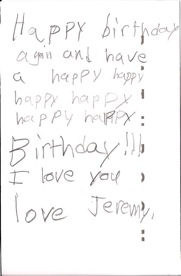 Happy birthday
again and have
a happy happy
happy happy
happy happy
Birthday!!!
I love you
love Jeremy.